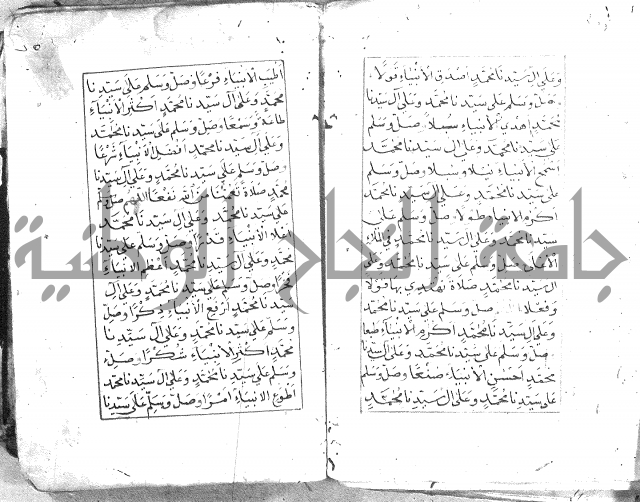 وعلى آل سيدنا محمد اصدق الانبياء قولا
وصل وسلم على سيدنا محمد وعلى آل سيدنا
محمد اهدى الانبياء سبيلا وصل وسلم
على سيدنا محمد وعلى ال سيدنا محمد
الانبياء وصل وسلم
على سيدنا محمد وعلى ال سيدنا محمد
اكرم الانبياء وصل وسلم على
سيدنا محمد وعلى ال سيدنا محمد في الملاء
الاعلى وصل وسلم على سيدنا محمد وعلى
ال سيدنا محمد صلاة بها قولا
وفعلا وصل وسلم على سيدنا محمد
وعلى ال سيدنا محمد اكرم الانبياء طبعا
وصل وسلم على سيدنا محمد وعلى ال سيدنا
محمد احسن الانبياء صنعا وصل وسلم
على سيدنا محمد وعلى ال سيدنا محمد
اطيب الانبياء فرعا وصل وسلم على سيدنا
محمد وعلى آل سيدنا محمد اكثر الانبياء
طاعة وسمعا وصل وسلم على سيدنا محمد
وعلى ال سيدنا محمد افضل الانبياء شرعا
وصل وسلم على سيدنا محمد وعلى ال سيدنا
محمد صلاة الله نفعا اللهم صل وسلم
على سيدنا محمد وعلى ال سيدنا محمد
اعلا الانبياء قدرا وصل وسلم على سيدنا
محمد وعلى ال سيدنا محمد اعظم الانبياء
فخرا وصل وسلم على سيدنا محمد وعلى ال
سيدنا محمد ارفع الانبياء ذكرا وصل
وسلم على سيدنا محمد وعلى آل سيدنا
محمد اكثر الانبياء شكرا وصل
وسلم على سيدنا محمد وعلى ال سيدنا محمد
اطوع الانبياء امرا وصل وسلم على سيدنا
جامعة النجاح الوطنية